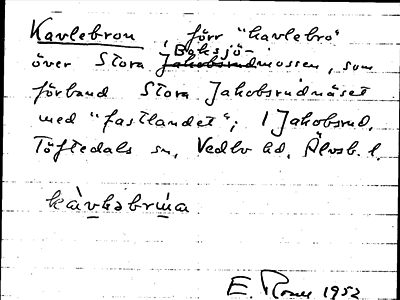 Kavlebron, förr "kavlebro"
Boksjö-
över Stora Jakobsrudmossen, som
förband Stora Jakobsrudnäset
med "fastlandet"; / Jakobsrud,
Töftedals sn, Vedbo hd, Älvsb. l.
E. 1952